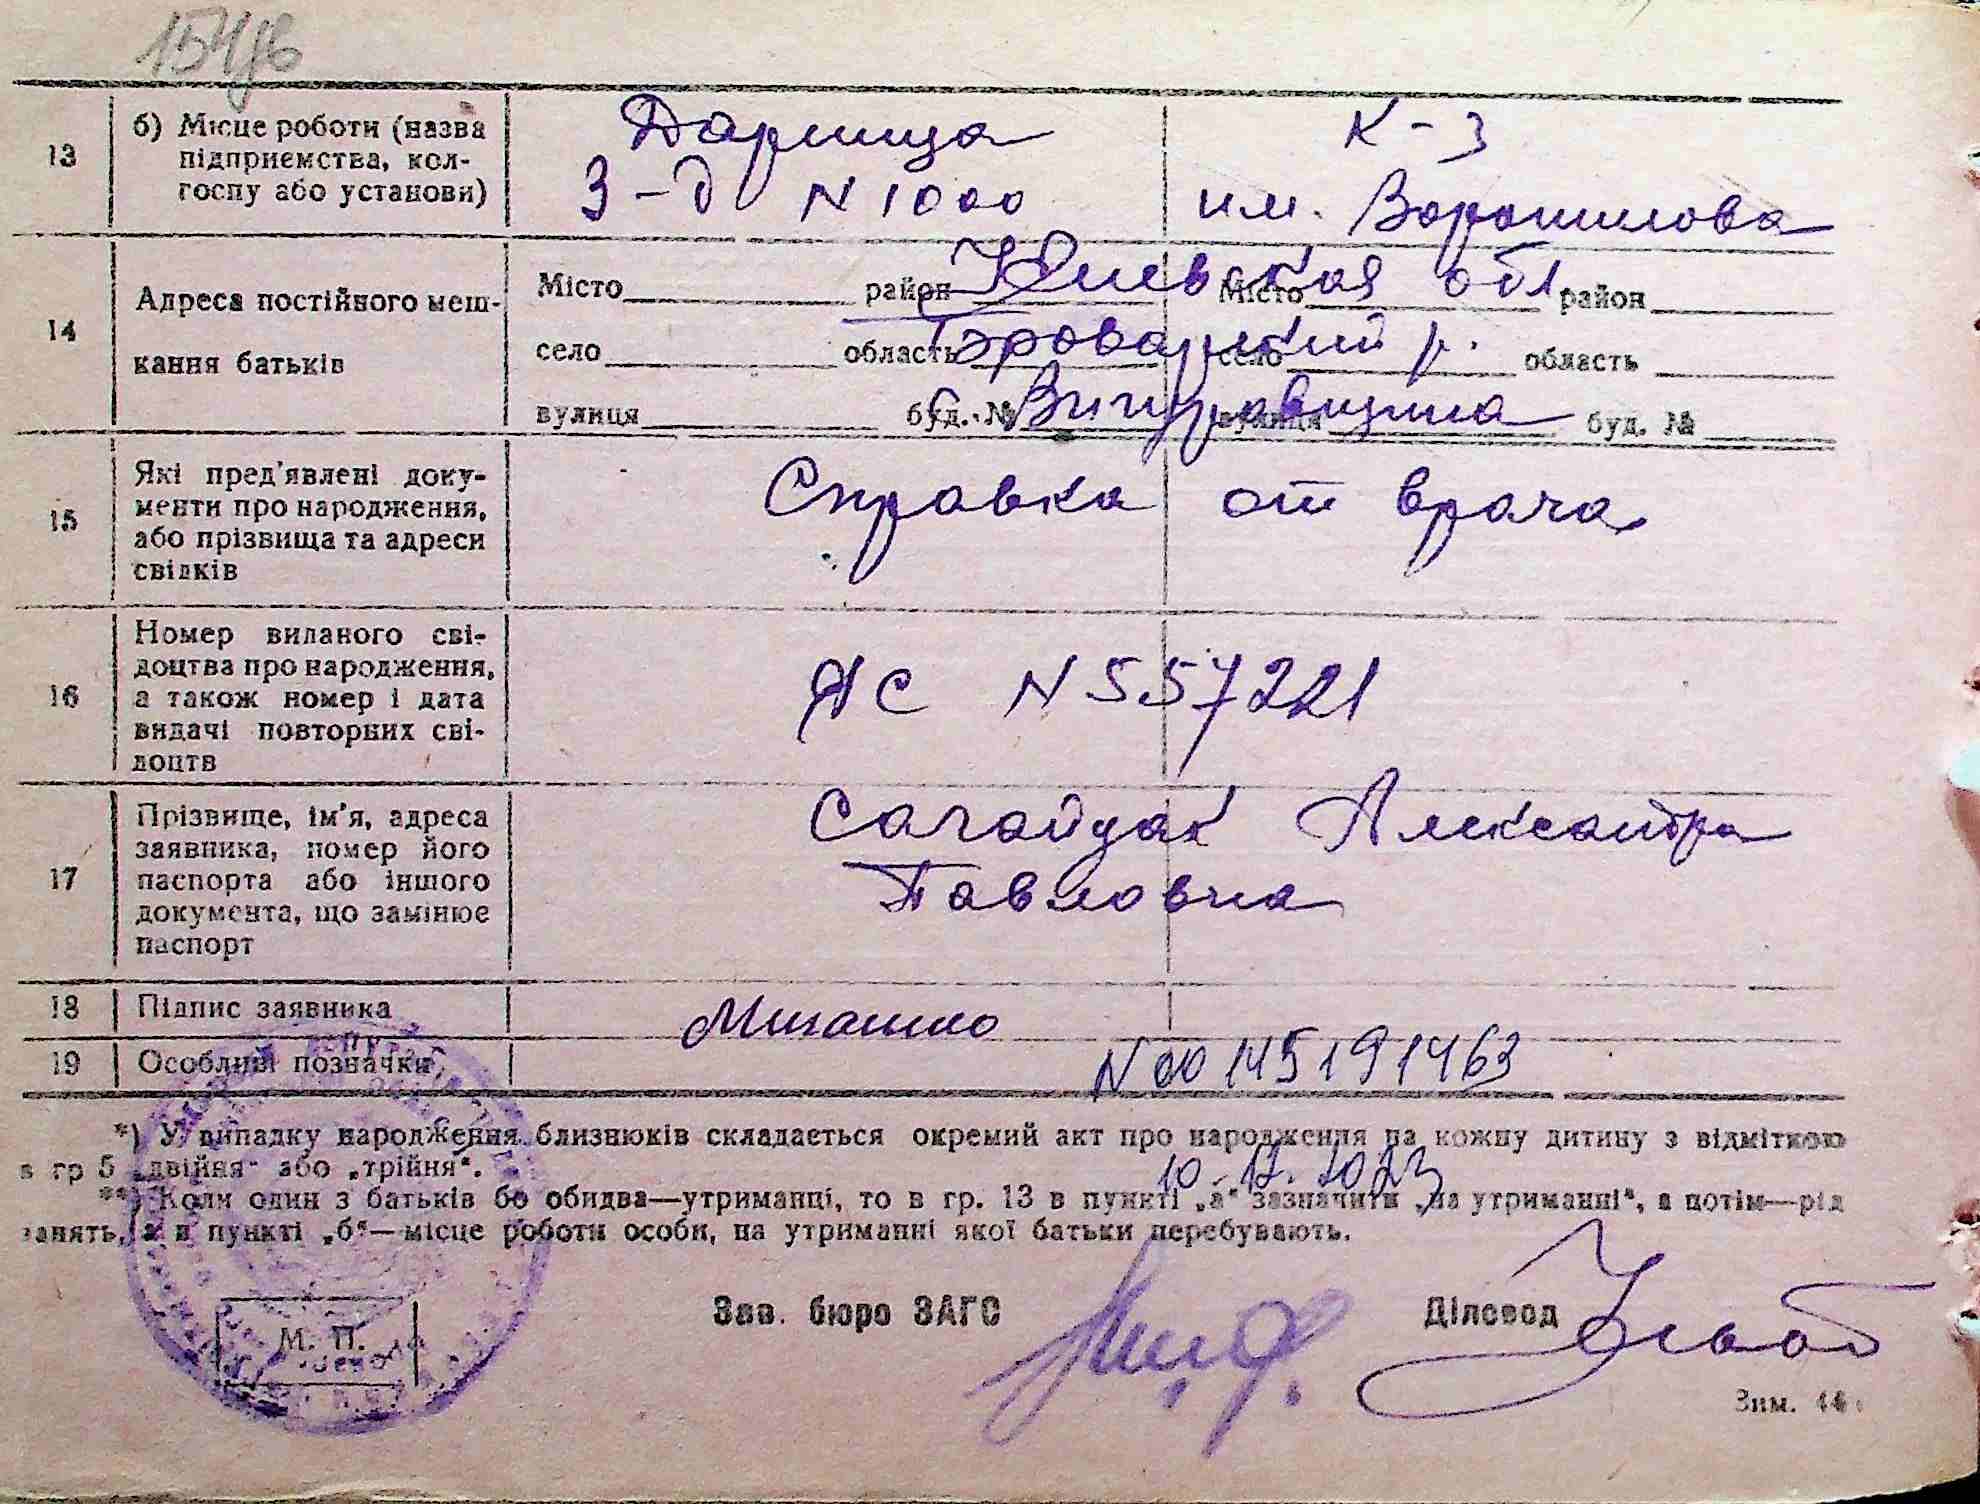 13 б) Місце роботи (назва Дарница К-З
підприємства, кол-
госпу або установи) З-д N 1000 им. Ворошилова
14 Адреса постійного меш- Місто район Киевская обл Місто район
кання батьків село область Броварский р. село область
вулиця буд. № с. Вигуравщина вулиця буд. №
15 Які пред'явлені доку- Справка от врача
менти про народження,
або прізвища та адреси
свідків
16 Номер виданого сві- ЯС N 557221
доцтва про народження,
а також номер і дата
видачі повторних сві-
доцтв
17 Прізвище, ім'я, адреса Сагайдак Александра
заявника, номер його Павловна
паспорта або іншого
документа, що замінює
паспорт
18 Підпис заявника
19 Особливі позначки N 00145191463
*) У випадку народження близнюків складається окремий акт про народження на кожну дитину з відміткою
в гр 5 „двійня" або „трійня".
10.12.2023
**) Коли один з батьків бо обидва—утриманці, то в гр. 13 в пункті „а" зазначити „на утриманні", а потім—рід
занять, а в пункті „б"—місце роботи особи, на утриманні якої батьки перебувають.
Зав. бюро ЗАГС Діловод
М. П.
Зим. 44